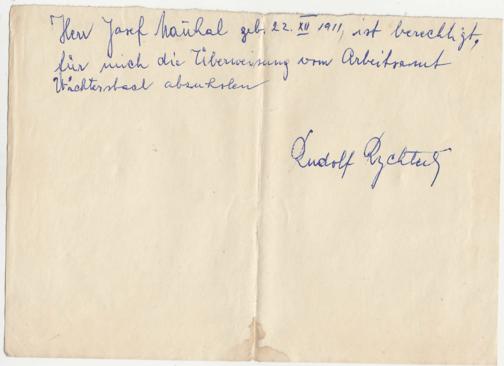 Herr Josef Maňhal geb. 22. XII 1911, ist berechtigt,
für mich die Überweisung vom Arbeitsamt
Wächtersbach abzuholen
Rudolf